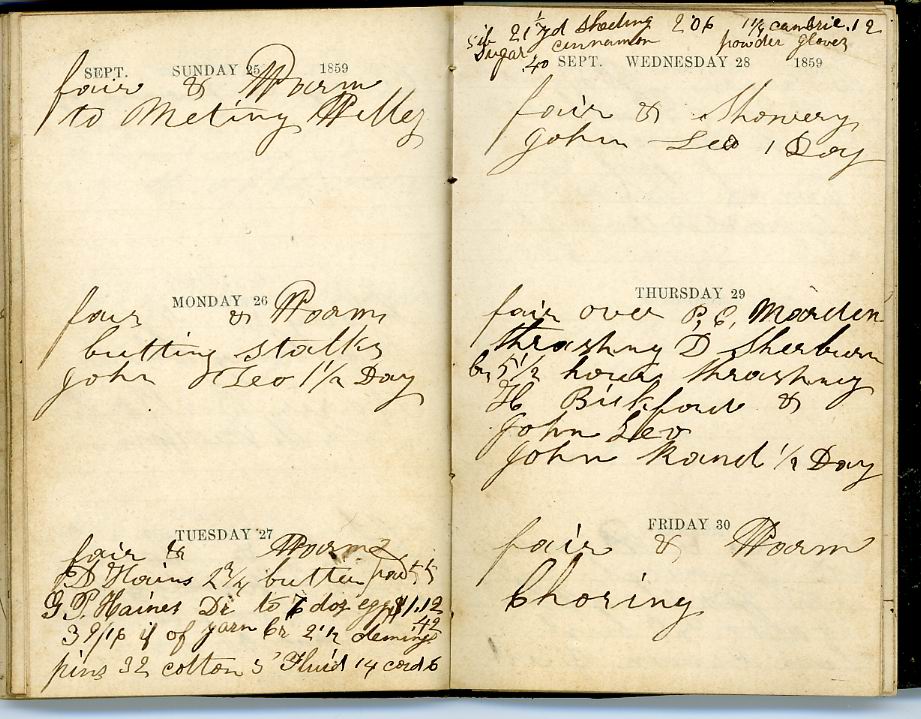 SEPT. SUNDAY 25 1859
fair & Warm
to Meting Willey
MONDAY 26
fair & Warm
cutting stalks
John & Leo 1 1/2 Day
TUESDAY 27
fair & Warm
J D Hains 2 3/4 butter paid 55
G P. Haines Dr to 6 doz eggs $1.12
3 9/16 of yarn Cr 2 1/2 deming 42
pins 32 cotton 5 Fluid 14 cord 6
21 1/2 yd sheeting 2.06 1 1/2 cambric .12
sugar cinnamon powder gloves
.40
SEPT. WEDNESDAY 28 1859
fair & Showery
John Leo 1 Day
THURSDAY 29
fair over P, C, Marden
thrashing D Sherburn
5 1/2 hours thrashing
H Bickford &
John Leo
John Rand 1/2 Day
FRIDAY 30
fair & Warm
Choring